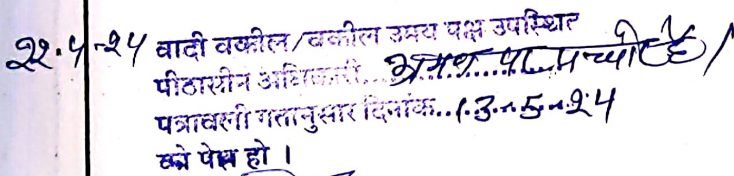 22.4-24 वादी वकील/वकील उभय पक्ष उपस्थित
पीठासीन अधिकारी.. भ्रमण पर है।
पत्रावली गतानुसार दिनांक..13.5.24
को पेश हो ।